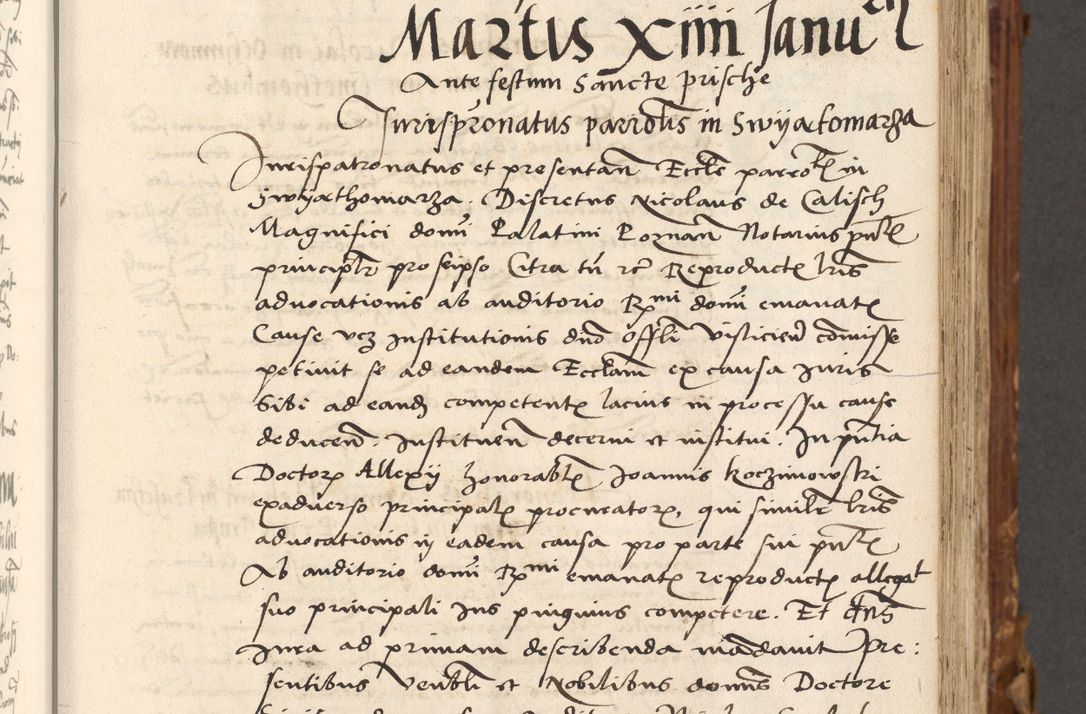 Martis XIIII Januarii
Ante festum Sancte prische
Jurispronatus parrotis in Swyathomarza
Jurispatronatus et presentan Eccle parrotis in
Swyathomarza. Discretus Nicolaus de Calisch
Magnifici domi Palatini Poznan Notarius pnte
principlr pro seipso Citra tn rc Reproducte lris
advocationis ab auditorio Rmi domi emanate
Cause vcz Institutionis dno offli Visliciens comisse
petivit se ad eandem Ecclam ex causa Juris
Sibi ad eand competente lacius in processu cause
deducen. Instituen decerni et institui. In pntia
Doctore Allexy honorabl Joannis Koczinowski
exadverso principale procuratore, qui simile lris
advocationis ij eadem causa pro parte sui pnte
Ab auditorio domi Rmi emanate reproducte allegat
suo principali Jus pinguius competere. Et dns
Jura ad primam describenda mandavit Pre:
sentibus Venbli et Nobilibus domis Doctore